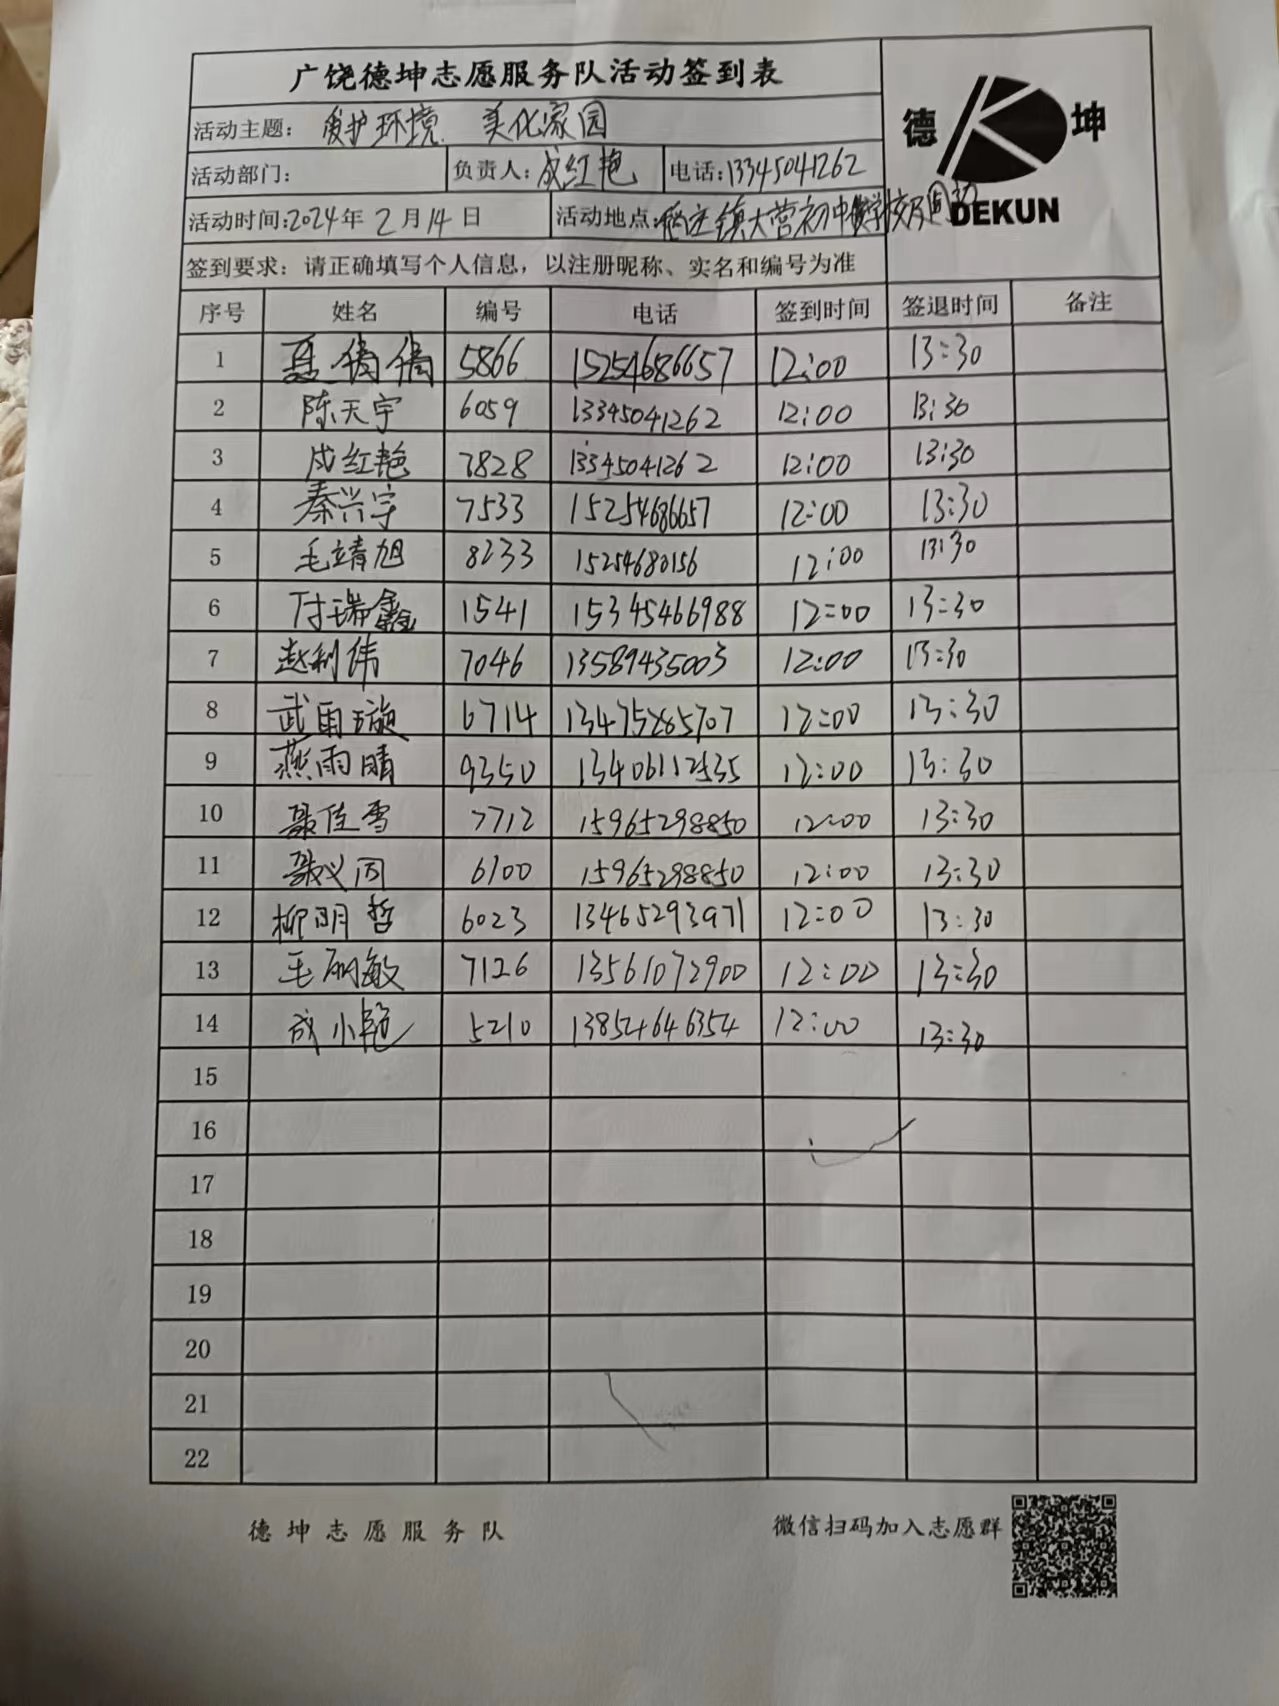 广饶德坤志愿服务队活动签到表
德 坤
DEKUN
活动主题： 爱护环境 美化家园
活动部门： 负责人：成红艳 电话：13345041262
活动时间：2024年 2月14日 活动地点： 镇大营初中
签到要求：请正确填写个人信息，以注册昵称、实名和编号为准
序号 姓名 编号 电话 签到时间 签退时间 备注
1 聂倩倩 5866 15254686657 12:00 13:30
2 陈天宇 6059 13345041262 12:00 13:30
3 成红艳 7828 13345041262 12:00 13:30
4 秦兴宇 7533 15254686657 12:00 13:30
5 毛靖旭 8233 15254680156 12:00 13:30
6 付瑞鑫 1541 15345466988 12:00 13:30
7 赵利伟 7046 13589435003 12:00 13:30
8 武雨璇 6714 13475285707 12:00 13:30
9 燕雨晴 9350 13406112535 12:00 13:30
10 聂佳雪 7712 15965298850 12:00 13:30
11 聂义同 6100 15965298850 12:00 13:30
12 柳明哲 6023 13465293971 12:00 13:30
13 毛丽敏 7126 13561072900 12:00 13:30
14 成小艳 5210 13854646354 12:00 13:30
15
16
17
18
19
20
21
22
德坤志愿服务队 微信扫码加入志愿群